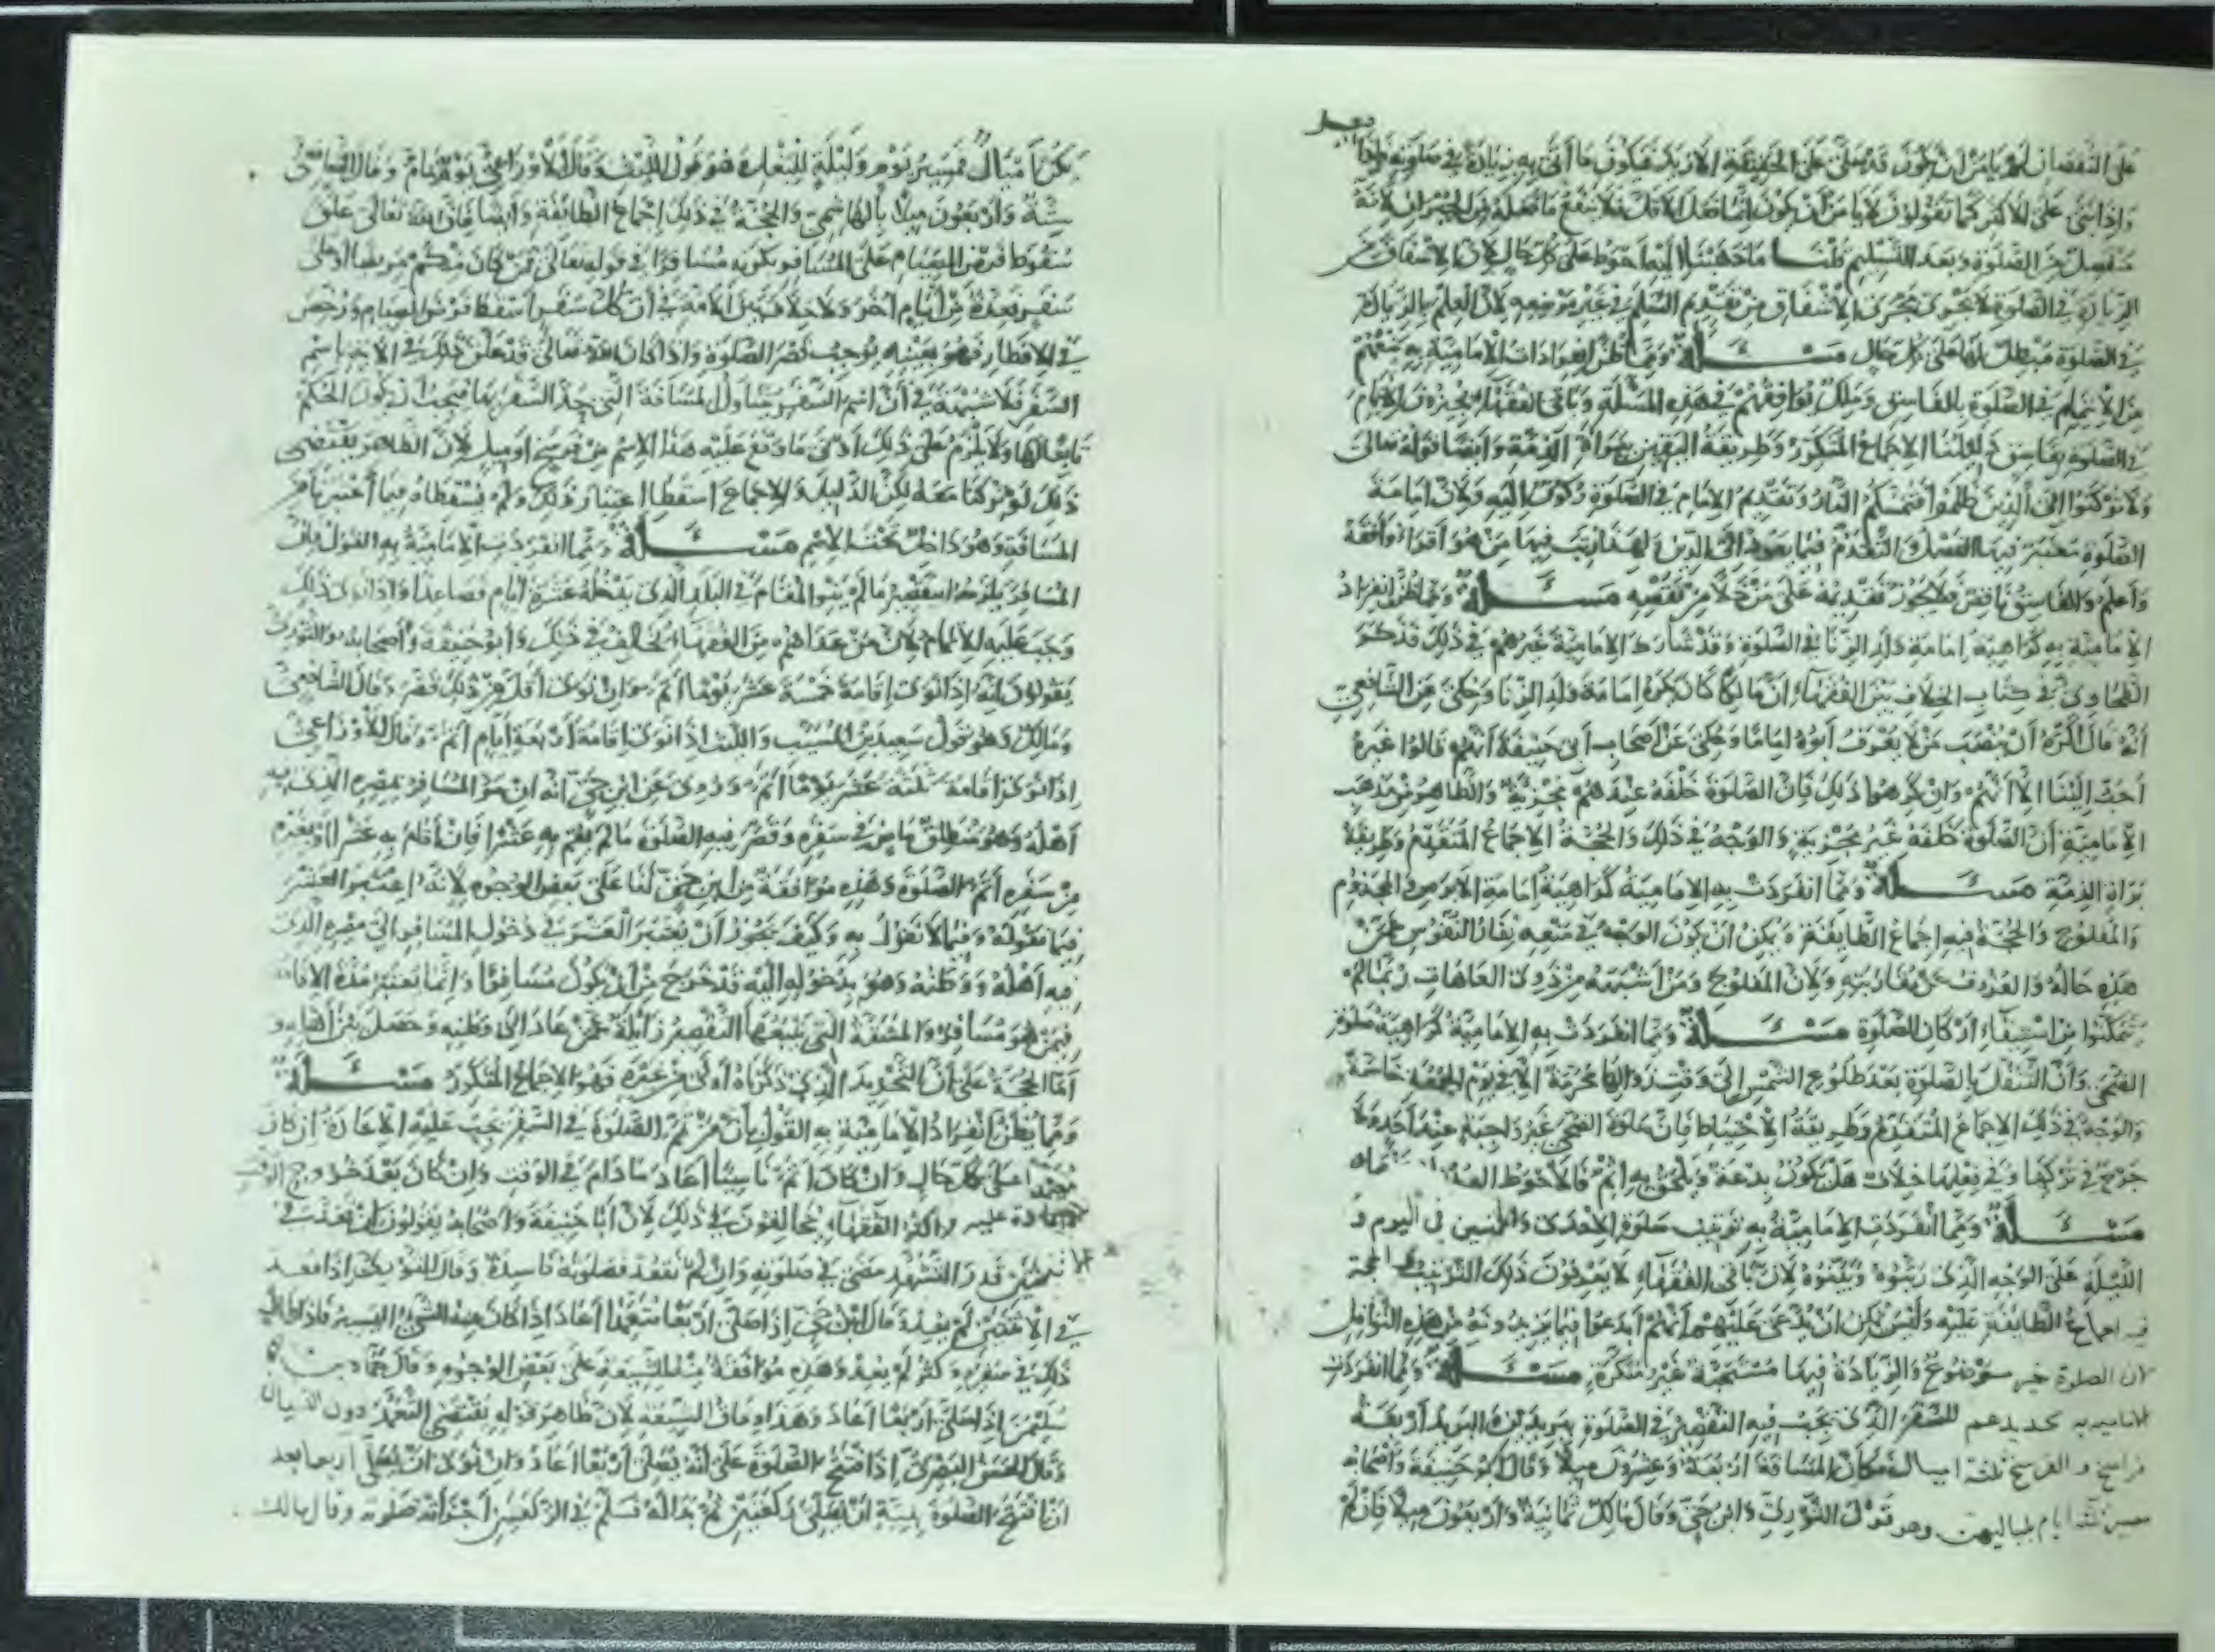 على النقصان لم يأمن أن يكون قد صلى على الحقيقة الأزيد فيكون ما أتى به زيادة في صلوته وإذا
بعد
وإذا بنى على الأكثر كما تقولون لا يأمن أن يكون إنما فعل الأقل فلا ينفع ما فعله من الجبران لأنه
منفصل من الصلوة وبعد التسليم قلنا ما ذهبنا إليه أحوط على كل حال لأن الإشفاق من
الزيادة في الصلوة لا يجري مجرى الإشفاق من تقديم السلم في غير موضعه لأن العلم بالزيادة
في الصلوة مبطل لها على كل حال مسئلة ومما ظن انفرادات الإمامية به منعهم
من الائتمام في الصلوة بالفاسق ومالك يوافقهم في هذه المسئلة وباقي الفقهاء يجيزون الائتمام
في الصلوة بفاسق دليلنا الإجماع المتكرر وطريقة اليقين ببراءة الذمة وأيضا قوله تعالى
ولا تركنوا إلى الذين ظلموا فتمسكم النار وتقديم الإمام في الصلوة ركون إليه ولأن إمامة
الصلوة معتبر فيها الفضل والتقدم فيما يعود إلى الدين ولهذا رتب فيها من هو أقرأ وأفقه
وأعلم والفاسق ناقص فلا يجوز تقديمه على من خلا من نقصه مسئلة ومما ظن انفراد
الإمامية به كراهية إمامة ولد الزنا في الصلوة وقد شارك الإمامية غيرهم في ذلك فذكر
الطحاوي في كتاب الخلاف بين الفقهاء أن مالكا كان يكره إمامة ولد الزنا وحكى عن الشافعي
أنه قال أكره أن ينصب من لا يعرف أبوه إماما وحكى عن أصحاب أبي حنيفة أنهم قالوا غيره
أحب إلينا إلا أنهم وإن كرهوا ذلك فإن الصلوة خلفه عندهم مجزية والظاهر من مذهب
الإمامية أن الصلوة خلفه غير مجزية والوجه في ذلك والحجة الإجماع المتقدم وطريقة
براءة الذمة مسئلة ومما انفردت به الإمامية كراهية إمامة الأبرص والمجذوم
والمفلوج والحجة فيه إجماع الطائفة ويمكن أن يكون الوجه في منعه نفار النفوس عمن
هذه حاله والعزوف عن مقاربته ولأن المفلوج ومن أشبهه من ذوي العاهات ربما لم
يتمكنوا من استيفاء أركان الصلوة مسئلة ومما انفردت به الإمامية كراهية صلوة
الضحى وأن التنفل بالصلوة بعد طلوع الشمس إلى وقت زوالها محرمة إلا في يوم الجمعة خاصة
والوجه في ذلك الإجماع المتقدم وطريقة الاحتياط فإن صلوة الضحى غير واجبة عند أحد ولا
حرج في تركها وفي فعلها خلاف هل يكون بدعة ويلحق به إثم فالأحوط
مسئلة ومما انفردت الإمامية به ترتيب صلوة الإحدى والخمسين في اليوم و
الليلة على الوجه الذي رتبوه وبينوه لأن باقي الفقهاء لا يعرفون ذلك الترتيب والحجة
في إجماع الطائفة عليه وليس يمكن أن يدعى عليهم أنهم أبدعوا فيما يزيدونه من هذه النوافل
لأن الصلوة خير موضوع والزيادة فيها مستحبة غير منكرة مسئلة ومما انفردت
الإمامية به تحديدهم للسفر الذي يجب فيه التقصير في الصلوة ببريدين والبريد أربعة
فراسخ والفرسخ ثلثة أميال فكان المسافة أربعة وعشرون ميلا وقال أبو حنيفة وأصحابه
مسير ثلثة أيام بلياليهن وهو قول الثوري وابن حي وقال مالك ثمانية وأربعون ميلا فإن لم
يكن أميال فمسير يوم وليلة للبغال وهو قول الليث وقال الأوزاعي يوم تام وقال الشافعي
ستة وأربعون ميلا بالهاشمي والحجة في ذلك إجماع الطائفة وأيضا فإن الله تعالى علق
سقوط فرض الصيام على المسافر بكونه مسافرا في قوله تعالى فمن كان منكم مريضا أو على
سفر فعدة من أيام أخر ولا خلاف بين الأمة في أن كل سفر أسقط فرض الصيام ورخص
في الإفطار فهو بعينه يوجب قصر الصلوة وإذا كان الله تعالى قد علق ذلك في الآية باسم
السفر فلا شبهة في أن اسم السفر يتناول المسافة التي حد السفر بها فيجب أن يكون الحكم
تابعا لها ولا يلزم على ذلك أدنى ما وقع عليه هذا الاسم من فرسخ أو ميل لأن الظاهر يقتضي
ذلك لو تركنا معه لكن الدليل والإجماع أسقطا اعتبار ذلك ولم يسقطاه فيما اعتبرناه من
المسافة وهو داخل تحت الاسم مسئلة ومما انفردت الإمامية به القول بأن
المسافر يلزمه التقصير ما لم ينو المقام في البلد الذي يدخله عشرة أيام فصاعدا وإذا نوى ذلك
وجب عليه الإتمام لأن من عداهم من الفقهاء يخالف في ذلك وأبو حنيفة وأصحابه والثوري
يقولون إنه إذا نوى إقامة خمسة عشر يوما أتم وإن نوى أقل من ذلك قصر وقال الشافعي
ومالك وهو قول سعيد بن المسيب والليث إذا نوى إقامة أربعة أيام أتم وقال الأوزاعي
إذا نوى إقامة ثلثة عشر يوما أتم وروي عن ابن حي أنه إن مر المسافر بمصره الذي به
أهله وهو منطلق ماض في سفره وقصر فيه الصلوة ما لم يقم به عشرا فإن أقام به عشرا أو بغيره
من سفره أتم الصلوة وهذه موافقة من ابن حي لنا على بعض الوجوه لأنه اعتبر العشر
فيما نقوله وفيما لا نقول به وكيف يجوز أن يعتبر العشر في دخول المسافر إلى مصره الذي
فيه أهله ووطنه وهو بدخوله إليه قد خرج من أن يكون مسافرا وإنما تعتبر مدة الإقامة
فيمن هو مسافر والمشقة التي يتبعها التقصير زائلة عمن عاد إلى وطنه وحصل بين أهله و
أما الحجة على أن التحديد الذي ذكرناه أولى من غيره فهو الإجماع المتكرر مسئلة
ومما يظن انفراد الإمامية به القول بأن من تمم الصلوة في السفر يجب عليه الإعادة إن كان
متعمدا على كل حال وإن كان أتم ناسيا أعاد ما دام في الوقت وإن كان بعد خروج الوقت
فلا إعادة عليه وأكثر الفقهاء يخالفون في ذلك لأن أبا حنيفة وأصحابه يقولون إن قعد في
الاثنتين قدر التشهد مضى في صلوته وإن لم يقعد فصلوته فاسدة وقال الثوري إذا قعد
في الاثنتين لم يعد وقال ابن حي إذا صلى أربعا متعمدا أعاد إذا كان منه الشيء اليسير فإذا طال
ذلك في سفره وكثر لم يعد وهذه موافقة منه للشيعة على بعض الوجوه وقال حماد بن أبي
سليمن إذا صلى أربعا أعاد وهذا وفاق الشيعة لأن ظاهر قوله يقتضي التعمد دون النسيان
وقال الحسن البصري إذا افتتح الصلوة على أنه يصلي أربعا أعاد وإن نوى أن يصلي أربعا بعد
أن افتتح الصلوة بنية أن يصلي ركعتين ثم بدا له فسلم في الركعتين أجزأته صلوته وقال مالك